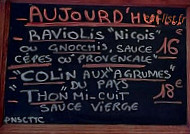 AUJOURD'HUI
RAVIOLIS "Niçois"
OU GNOCCHIS, SAUCE 16 €
CÈPES OU PROVENÇALE
"COLIN AUX "AGRUMES"
DU PAYS 18 €
THON MI-CUIT
SAUCE VIERGE